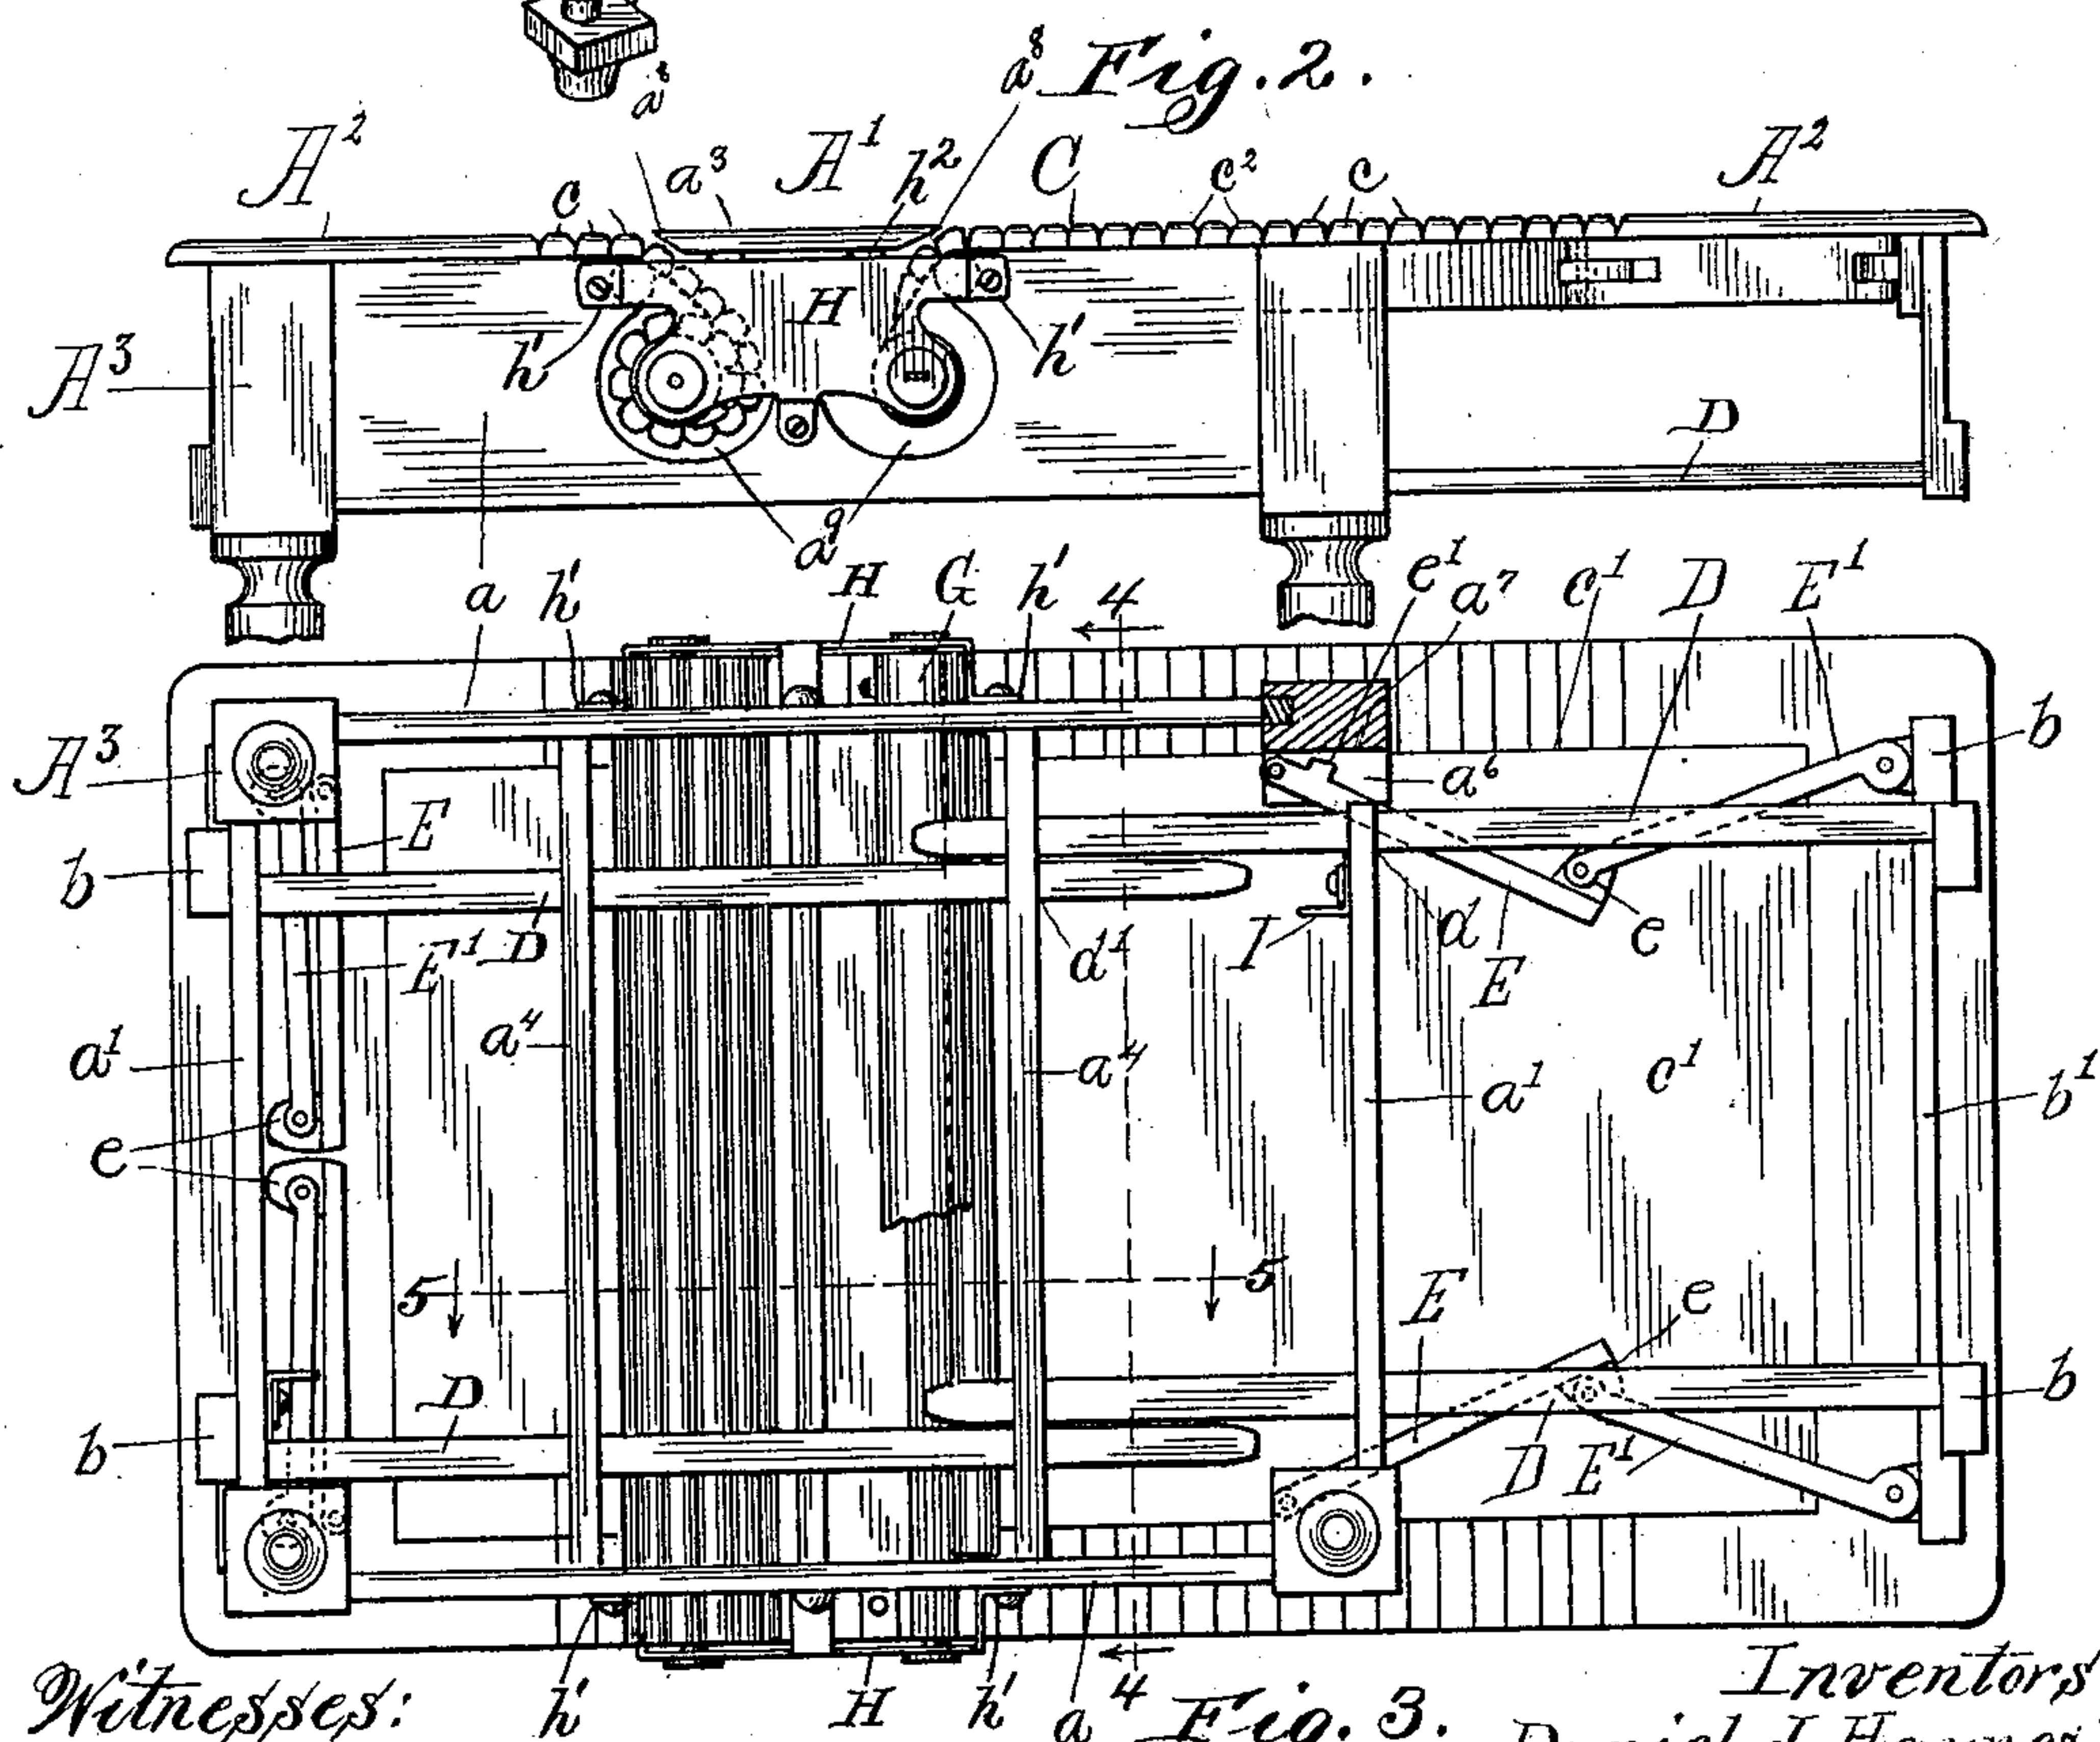 a⁸
Fig. 2.
a⁸
A²
A¹
a³
h²
C
c²
c
A²
c
A³
H
h'
h'
D
a⁹
a
h'
H
G
h'
4
e¹
a⁷
c¹
D
E¹
b
A³
a⁶
E
b
E¹
D
d¹
I
d
E
e
a¹
a⁴
a⁴
a¹
c¹
b¹
e
5
5
E
e
D
b
D
E¹
b
Witnesses:
h'
H
h'
a
4
Fig. 3.
Inventors